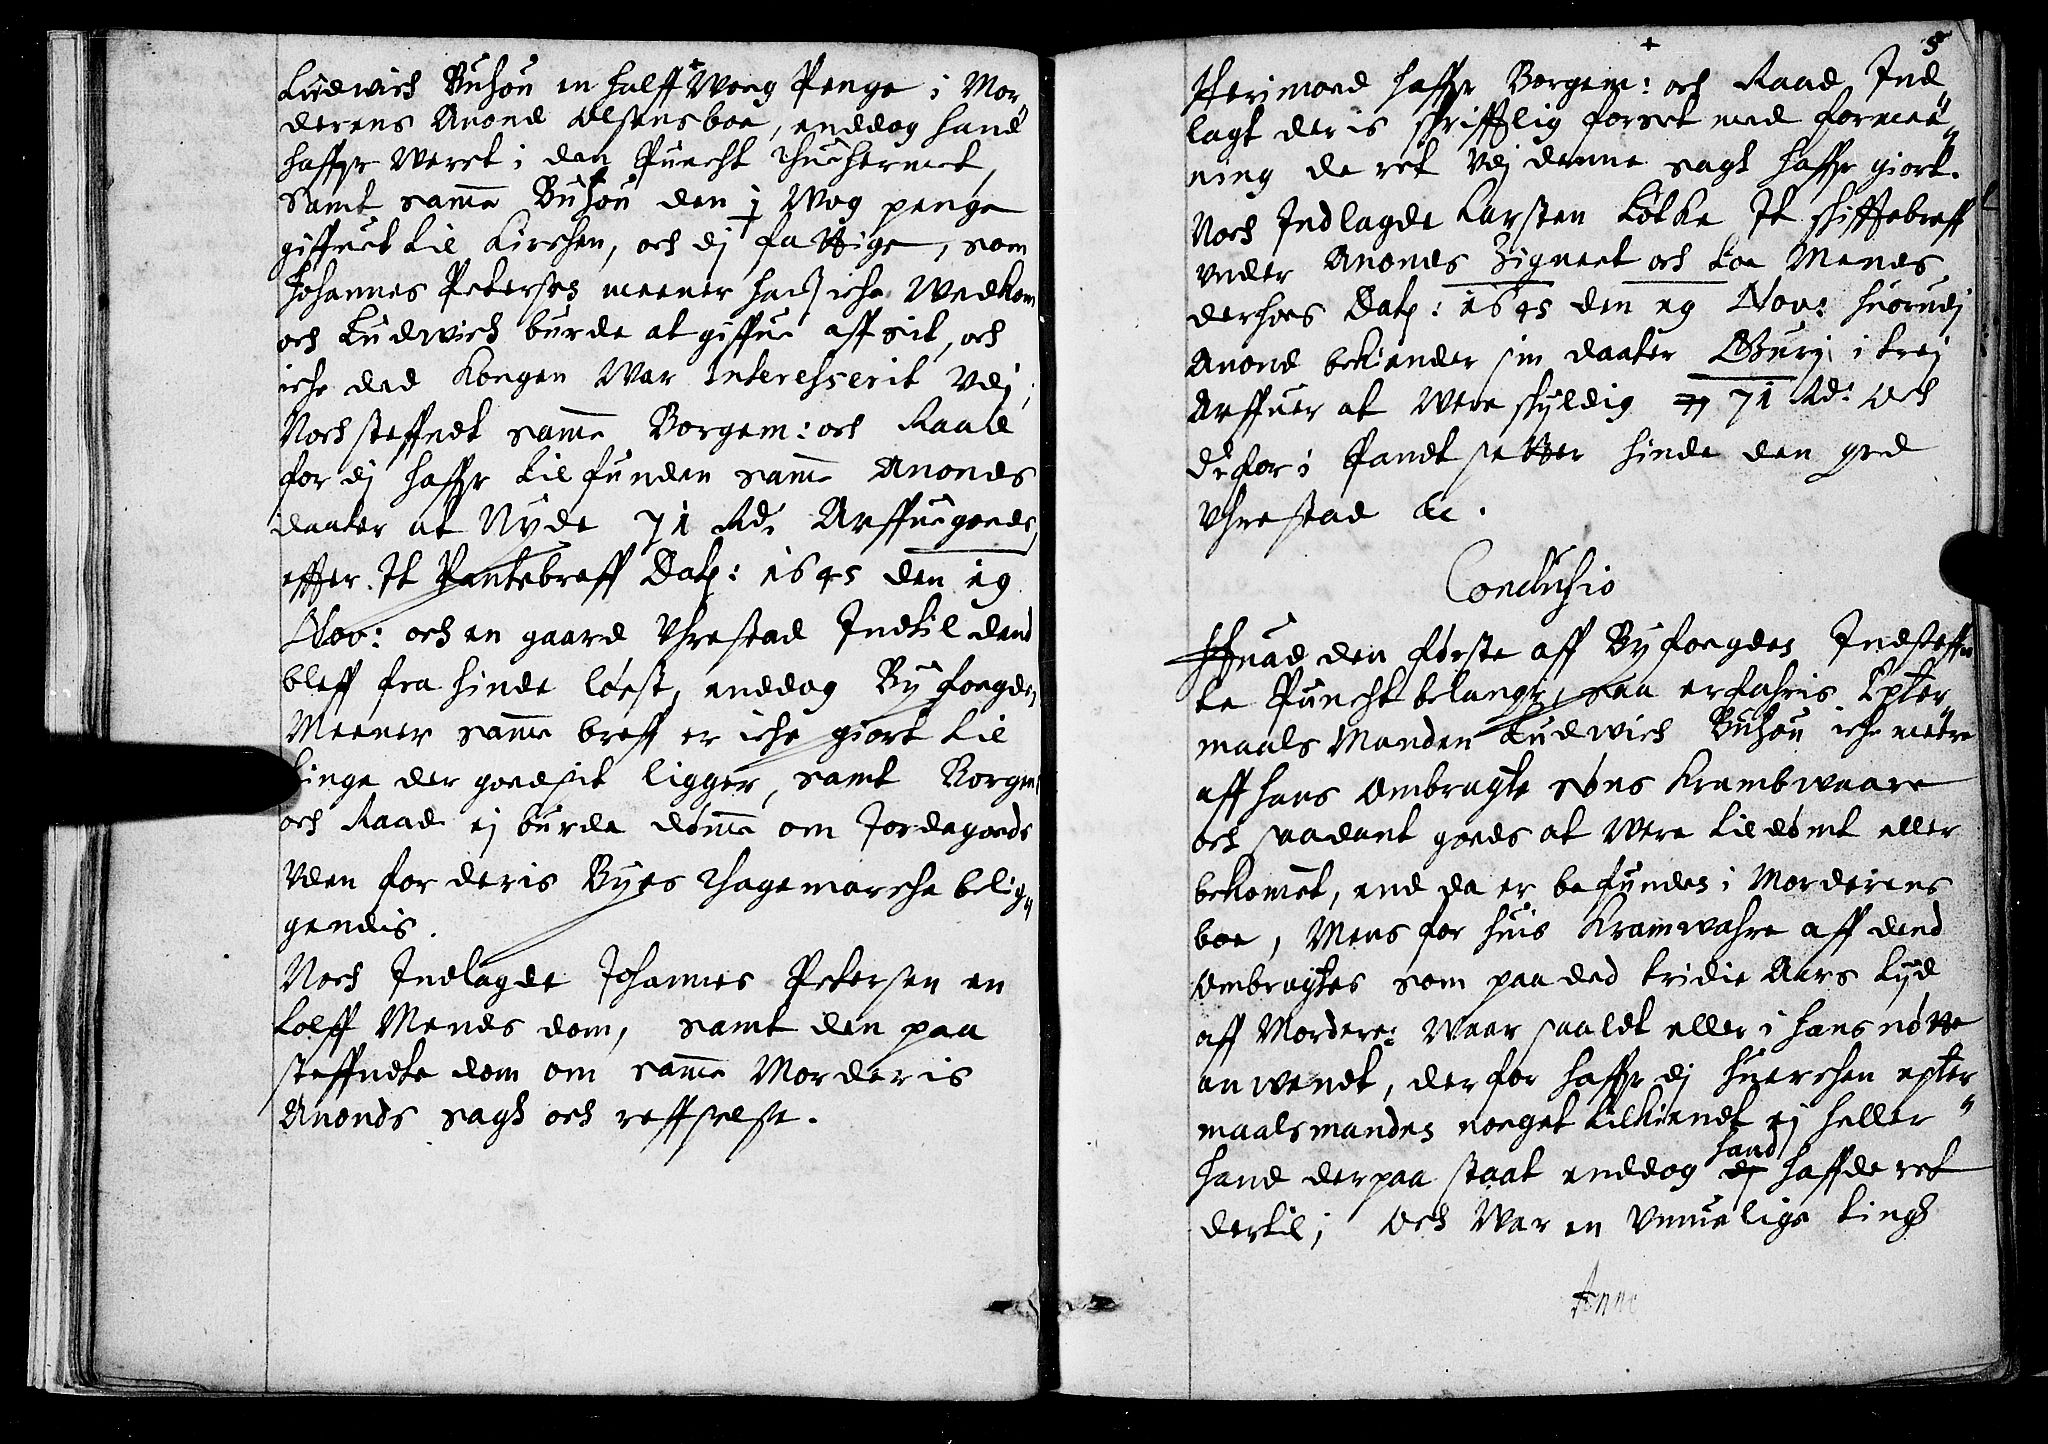 Ludwich Buhou en halff Woeg Penge i Mor„
derens Anond Olsens boe, enddog hand
haffr Weret i den Puncht Thuchermet,
Samt samme Buhou den j Wog penge
giffuet til Kirchen, och dj fattige, som
Johannes Petersen meener hans iche Wedkom
och Ludwich burde at giffue aff sit, och
iche ded Kongen War Interesserit Vdj,
Noch steffnedt samme Borgem: och Raad
for dj haffr tilfunden samme Anonds
daater at Nyde 71 Rdr Arffuegoeds,
effter It Pantebreff Dat: 1645 den 19
Nov: och en gaard Vhrestad Indtil dend
bleff fra hinde løest, enddog Byfoegden
Meener samme breff er iche giort til
tinge der goedsit ligger, samt Borgem:
och Raad ej burde dømme om Jordegoeds
Vden for deris Byes Thagemarche belig„
gendis.
Noch Indlagde Johannes Petersen en
tolff Mends dom, samt den paa
steffndte dom om samme Morderis
Anonds sagh och reffselse.
5
Herimoed haffr Borgem: och Raad Ind„
lagt deris skrifftlig forset med formee„
ning de ret Vdj denne sagh haffr giort.
Noch Indlagde Karsten Lòtke It skifftebreff
vnder Anonds Zigneet och toe Mends,
derhoes Dat: 1645 den 19 Nov: huorudj
Anond bekiender sin daater Gurj i trej
Arffuer at Were skyldig 71 Rdr Och
derfor i Pandt setter hinde den grd
Vhrestad &c.
Conclusio
Huad den første aff Byfoegden Indsteffn
te Puncht belangr, saa erfahris Epter„
maals Manden Ludwich Buhou iche meere
aff hans Ombragte søns Krambwaare
och saadant goeds at Were tildømt eller
bekomet, end da er befunden i Morderens
boe, Mens for huis Kramwahre aff dend
Ombragtes som paa ded tridie Aars tijd
aff Mordere: Waar saaldt eller i hans nøtte
anwendt, derfor haffr dj huerchen epter„
maalsmanden noeget tilkiendt ej heller
hand derpaa staat enddog hand haffde ret
dertil; Och War en Vmuelige tingh
Anno